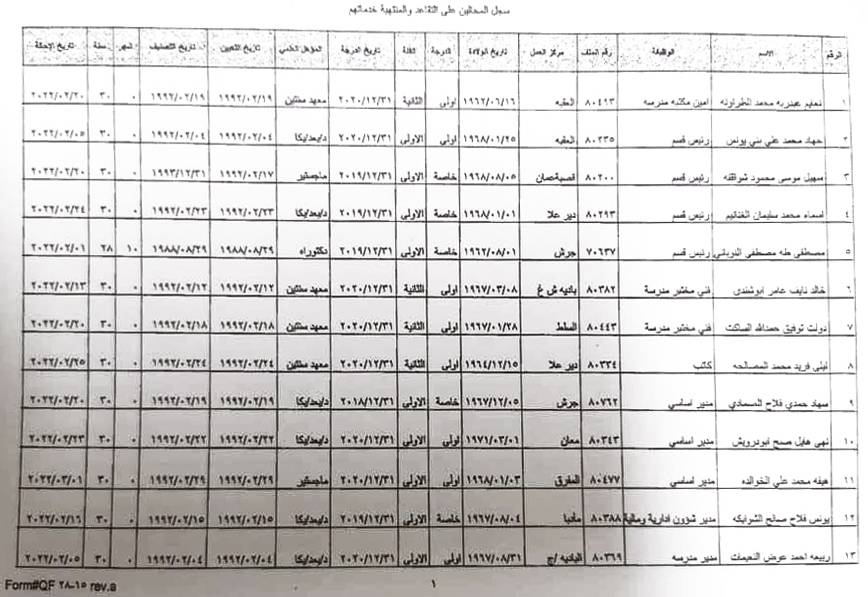 سجل المحالين على التقاعد والمنتهية خدماتهم
الرقم الاسم الوظيفة رقم الملف مركز العمل تاريخ الولادة الدرجة الفئة تاريخ الدرجة المؤهل العلمي تاريخ التعيين تاريخ التصنيف شهر سنة تاريخ الإحالة
١ محمد الطراونه امين مكتبه مدرسه ٨٠٤٩٣ العقبه ١٩٦٢/٠٦/١٦ اولى الثانية ٢٠٢٠/١٢/٣١ معهد سنتين ١٩٩٢/٠٢/١٩ ١٩٩٢/٠٢/١٩ ٠ ٣٠ ٢٠٢٢/٠٢/٢٠
٢ جهاد محمد علي بني يونس رئيس قسم ٨٠٢٣٥ العقبه ١٩٦٨/٠١/٢٥ اولى الاولى ٢٠٢٠/١٢/٣١ د/بعد/بكا ١٩٩٢/٠٢/٠٤ ١٩٩٢/٠٢/٠٤ ٠ ٣٠ ٢٠٢٢/٠٢/٠٥
٣ سهيل موسى محمود شواقفه رئيس قسم ٨٠٢٠٠ قصبة عمان ١٩٦٨/٠٨/٠٥ خاصة الاولى ٢٠١٩/١٢/٣١ ماجستير ١٩٩٢/٠٢/١٧ ١٩٩٣/١٢/٣١ ٠ ٣٠ ٢٠٢٢/٠٢/٢٠
٤ اسماء محمد سليمان الغنانيم رئيس قسم ٨٠٢٩٣ دير علا ١٩٦٨/٠١/٠١ خاصة الاولى ٢٠١٩/١٢/٣١ د/بعد/بكا ١٩٩٢/٠٢/٢٣ ١٩٩٢/٠٢/٢٣ ٠ ٣٠ ٢٠٢٢/٠٢/٢٤
٥ مصطفى طه مصطفى رئيس قسم ٧٠٦٣٧ جرش ١٩٦٢/٠٨/٠١ خاصة الاولى ٢٠١٩/١٢/٣١ دكتوراه ١٩٨٨/٠٨/٢٩ ١٩٨٨/٠٨/٢٩ ١٠ ٢٨ ٢٠٢٢/٠٢/٠١
٦ خالد نايف عامر ابوشندى فني مختبر مدرسة ٨٠٣٨٢ باديه ش غ ١٩٦٧/٠٣/٠٨ اولى الثانية ٢٠٢٠/١٢/٣١ معهد سنتين ١٩٩٢/٠٢/١٢ ١٩٩٢/٠٢/١٢ ٠ ٣٠ ٢٠٢٢/٠٢/١٣
٧ دولت توفيق حمدالله الساكت فني مختبر مدرسة ٨٠٤٤٣ السلط ١٩٦٧/٠١/٢٨ اولى الثانية ٢٠٢٠/١٢/٣١ معهد سنتين ١٩٩٢/٠٢/١٨ ١٩٩٢/٠٢/١٨ ٠ ٣٠ ٢٠٢٢/٠٢/٢٠
٨ ليلى فريد محمد المصالحه كاتب ٨٠٣٣٤ دير علا ١٩٦٤/١٢/١٥ اولى الثانية ٢٠٢٠/١٢/٣١ معهد سنتين ١٩٩٢/٠٢/٢٤ ١٩٩٢/٠٢/٢٤ ٠ ٣٠ ٢٠٢٢/٠٢/٢٥
٩ سهاد حمدي فلاح الصمادي مدير اساسي ٨٠٧٦٢ جرش ١٩٦٧/١٢/٠٥ خاصة الاولى ٢٠١٨/١٢/٣١ د/بعد/بكا ١٩٩٢/٠٢/١٩ ١٩٩٢/٠٢/١٩ ٠ ٣٠ ٢٠٢٢/٠٢/٢٠
١٠ نهى هايل صبح ابودرويش مدير اساسي ٨٠٣٤٣ معان ١٩٧١/٠٣/٠١ اولى الاولى ٢٠٢٠/١٢/٣١ د/بعد/بكا ١٩٩٢/٠٢/٢٢ ١٩٩٢/٠٢/٢٢ ٠ ٣٠ ٢٠٢٢/٠٢/٢٣
١١ هيفه محمد علي الخوالده مدير اساسي ٨٠٤٧٧ المفرق ١٩٦٨/٠١/٠٣ اولى الاولى ٢٠٢٠/١٢/٣١ ماجستير ١٩٩٢/٠٢/٢٩ ١٩٩٢/٠٢/٢٩ ٠ ٣٠ ٢٠٢٢/٠٣/٠١
١٢ يونس فلاح صالح الشوابكه مدير شؤون ادارية ومالية ٨٠٣٨٨ مأدبا ١٩٦٧/٠٨/٠٤ خاصة الاولى ٢٠١٩/١٢/٣١ د/بعد/بكا ١٩٩٢/٠٢/١٥ ١٩٩٢/٠٢/١٥ ٠ ٣٠ ٢٠٢٢/٠٢/١٦
١٣ ربيعه احمد عوض النعيمات مدير مدرسه ٨٠٣٦٩ الباديه /ج ١٩٦٧/٠٨/٣١ اولى الاولى ٢٠٢٠/١٢/٣١ د/بعد/بكا ١٩٩٢/٠٢/٠٤ ١٩٩٢/٠٢/٠٤ ٠ ٣٠ ٢٠٢٢/٠٢/٠٥
١
Form#QF ٢٨-١٥ rev.a